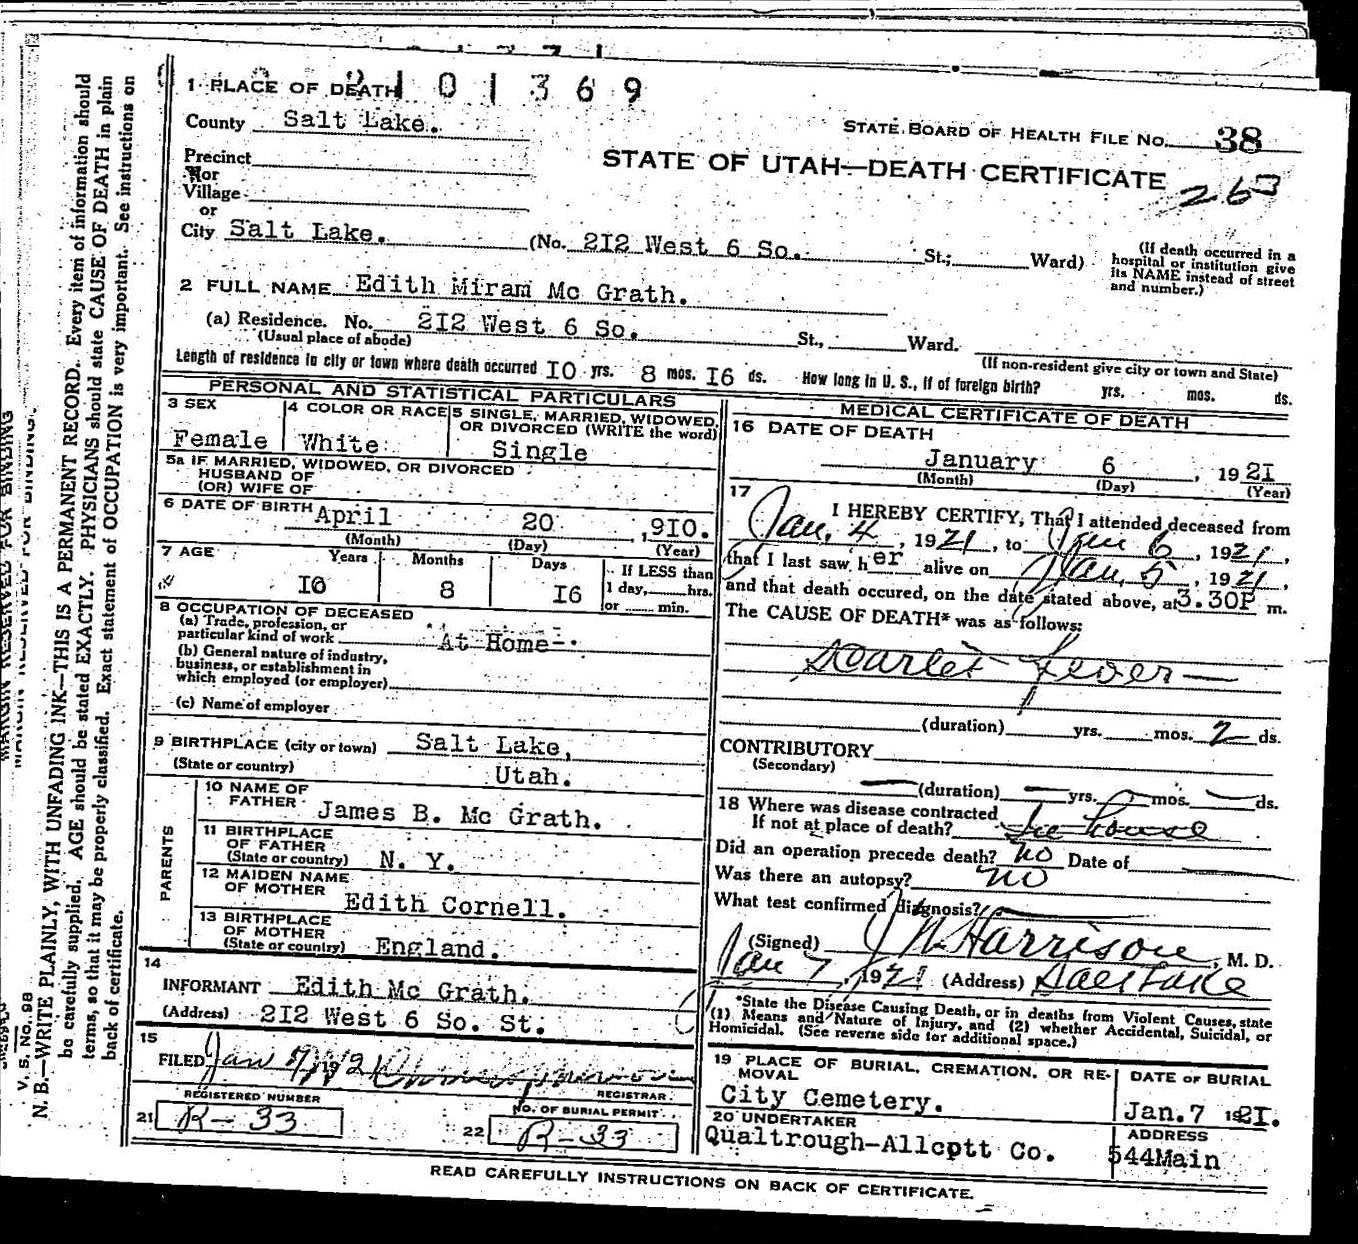 2101369
1 PLACE OF DEATH
County Salt Lake.
STATE BOARD OF HEALTH FILE No. 38
Precinct
or
Village
STATE OF UTAH—DEATH CERTIFICATE
263
or
City Salt Lake. (No. 2I2 West 6 So. St.; Ward)
(If death occurred in a hospital or institution give its NAME instead of street and number.)
2 FULL NAME Edith Miram Mc Grath.
(a) Residence. No. 2I2 West 6 So. St., Ward.
(Usual place of abode) (If non-resident give city or town and State)
Length of residence in city or town where death occurred I0 yrs. 8 mos. I6 ds. How long in U. S., if of foreign birth? yrs. mos. ds.
PERSONAL AND STATISTICAL PARTICULARS
3 SEX
Female
4 COLOR OR RACE
White
5 SINGLE, MARRIED, WIDOWED, OR DIVORCED (WRITE the word)
Single
5a IF MARRIED, WIDOWED, OR DIVORCED
HUSBAND OF
(OR) WIFE OF
6 DATE OF BIRTH April 20 ,910.
(Month) (Day) (Year)
7 AGE Years Months Days If LESS than
1 day, hrs.
or min.
I0 8 I6
8 OCCUPATION OF DECEASED
(a) Trade, profession, or
particular kind of work At Home-
(b) General nature of industry,
business, or establishment in
which employed (or employer)
(c) Name of employer
9 BIRTHPLACE (city or town) Salt Lake,
(State or country) Utah.
PARENTS
10 NAME OF
FATHER James B. Mc Grath.
11 BIRTHPLACE
OF FATHER
(State or country) N. Y.
12 MAIDEN NAME
OF MOTHER Edith Cornell.
13 BIRTHPLACE
OF MOTHER
(State or country) England.
14
INFORMANT Edith Mc Grath.
(Address) 2I2 West 6 So. St.
15
FILED Jan
REGISTRAR.
REGISTERED NUMBER
21 R-33
NO. OF BURIAL PERMIT
22 R-33
MEDICAL CERTIFICATE OF DEATH
16 DATE OF DEATH
January 6 , 1921
(Month) (Day) (Year)
17
I HEREBY CERTIFY, That I attended deceased from
Jan. 4, 1921, to Jan 6, 1921,
that I last saw her alive on Jan. 5, 1921,
and that death occured, on the date stated above, at 3.30P m.
The CAUSE OF DEATH* was as follows:
Scarlet Fever
(duration) yrs. mos. 2 ds.
CONTRIBUTORY
(Secondary)
(duration) yrs. mos. ds.
18 Where was disease contracted
If not at place of death? house
Did an operation precede death? no Date of
Was there an autopsy? no
What test confirmed diagnosis?
(Signed) J W Harrison, M. D.
Jan 7, 1921 (Address) Salt Lake
*State the Disease Causing Death, or in deaths from Violent Causes, state
(1) Means and Nature of Injury, and (2) whether Accidental, Suicidal, or
Homicidal. (See reverse side for additional space.)
19 PLACE OF BURIAL, CREMATION, OR REMOVAL
City Cemetery.
DATE OF BURIAL
Jan.7 192I.
20 UNDERTAKER
Qualtrough-Allcott Co.
ADDRESS
544Main
READ CAREFULLY INSTRUCTIONS ON BACK OF CERTIFICATE.
MARGIN RESERVED FOR BINDING.
V. S. No. 98
N. B.—WRITE PLAINLY, WITH UNFADING INK—THIS IS A PERMANENT RECORD. Every item of information should
be carefully supplied. AGE should be stated EXACTLY. PHYSICIANS should state CAUSE OF DEATH in plain
terms, so that it may be properly classified. Exact statement of OCCUPATION is very important. See instructions on
back of certificate.